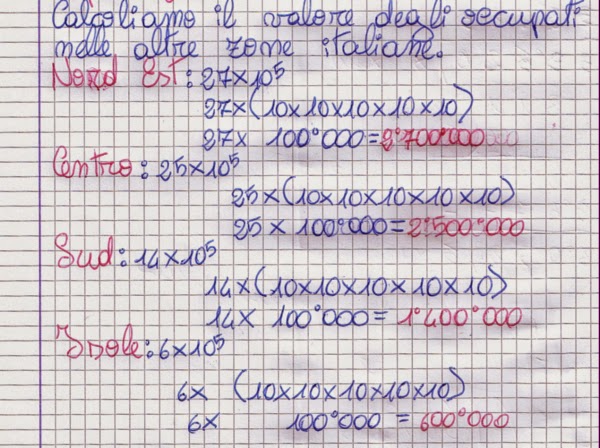 Calcoliamo il valore degli occupati
nelle altre zone italiane.
Nord Est: 27x10⁵
27x(10x10x10x10x10)
27x 100°000=2°700°000
Centro: 25x10⁵
25x(10x10x10x10x10)
25x 100°000=2°500°000
Sud: 14x10⁵
14x(10x10x10x10x10)
14x 100°000= 1°400°000
Isole: 6x10⁵
6x (10x10x10x10x10)
6x 100°000 = 600°000